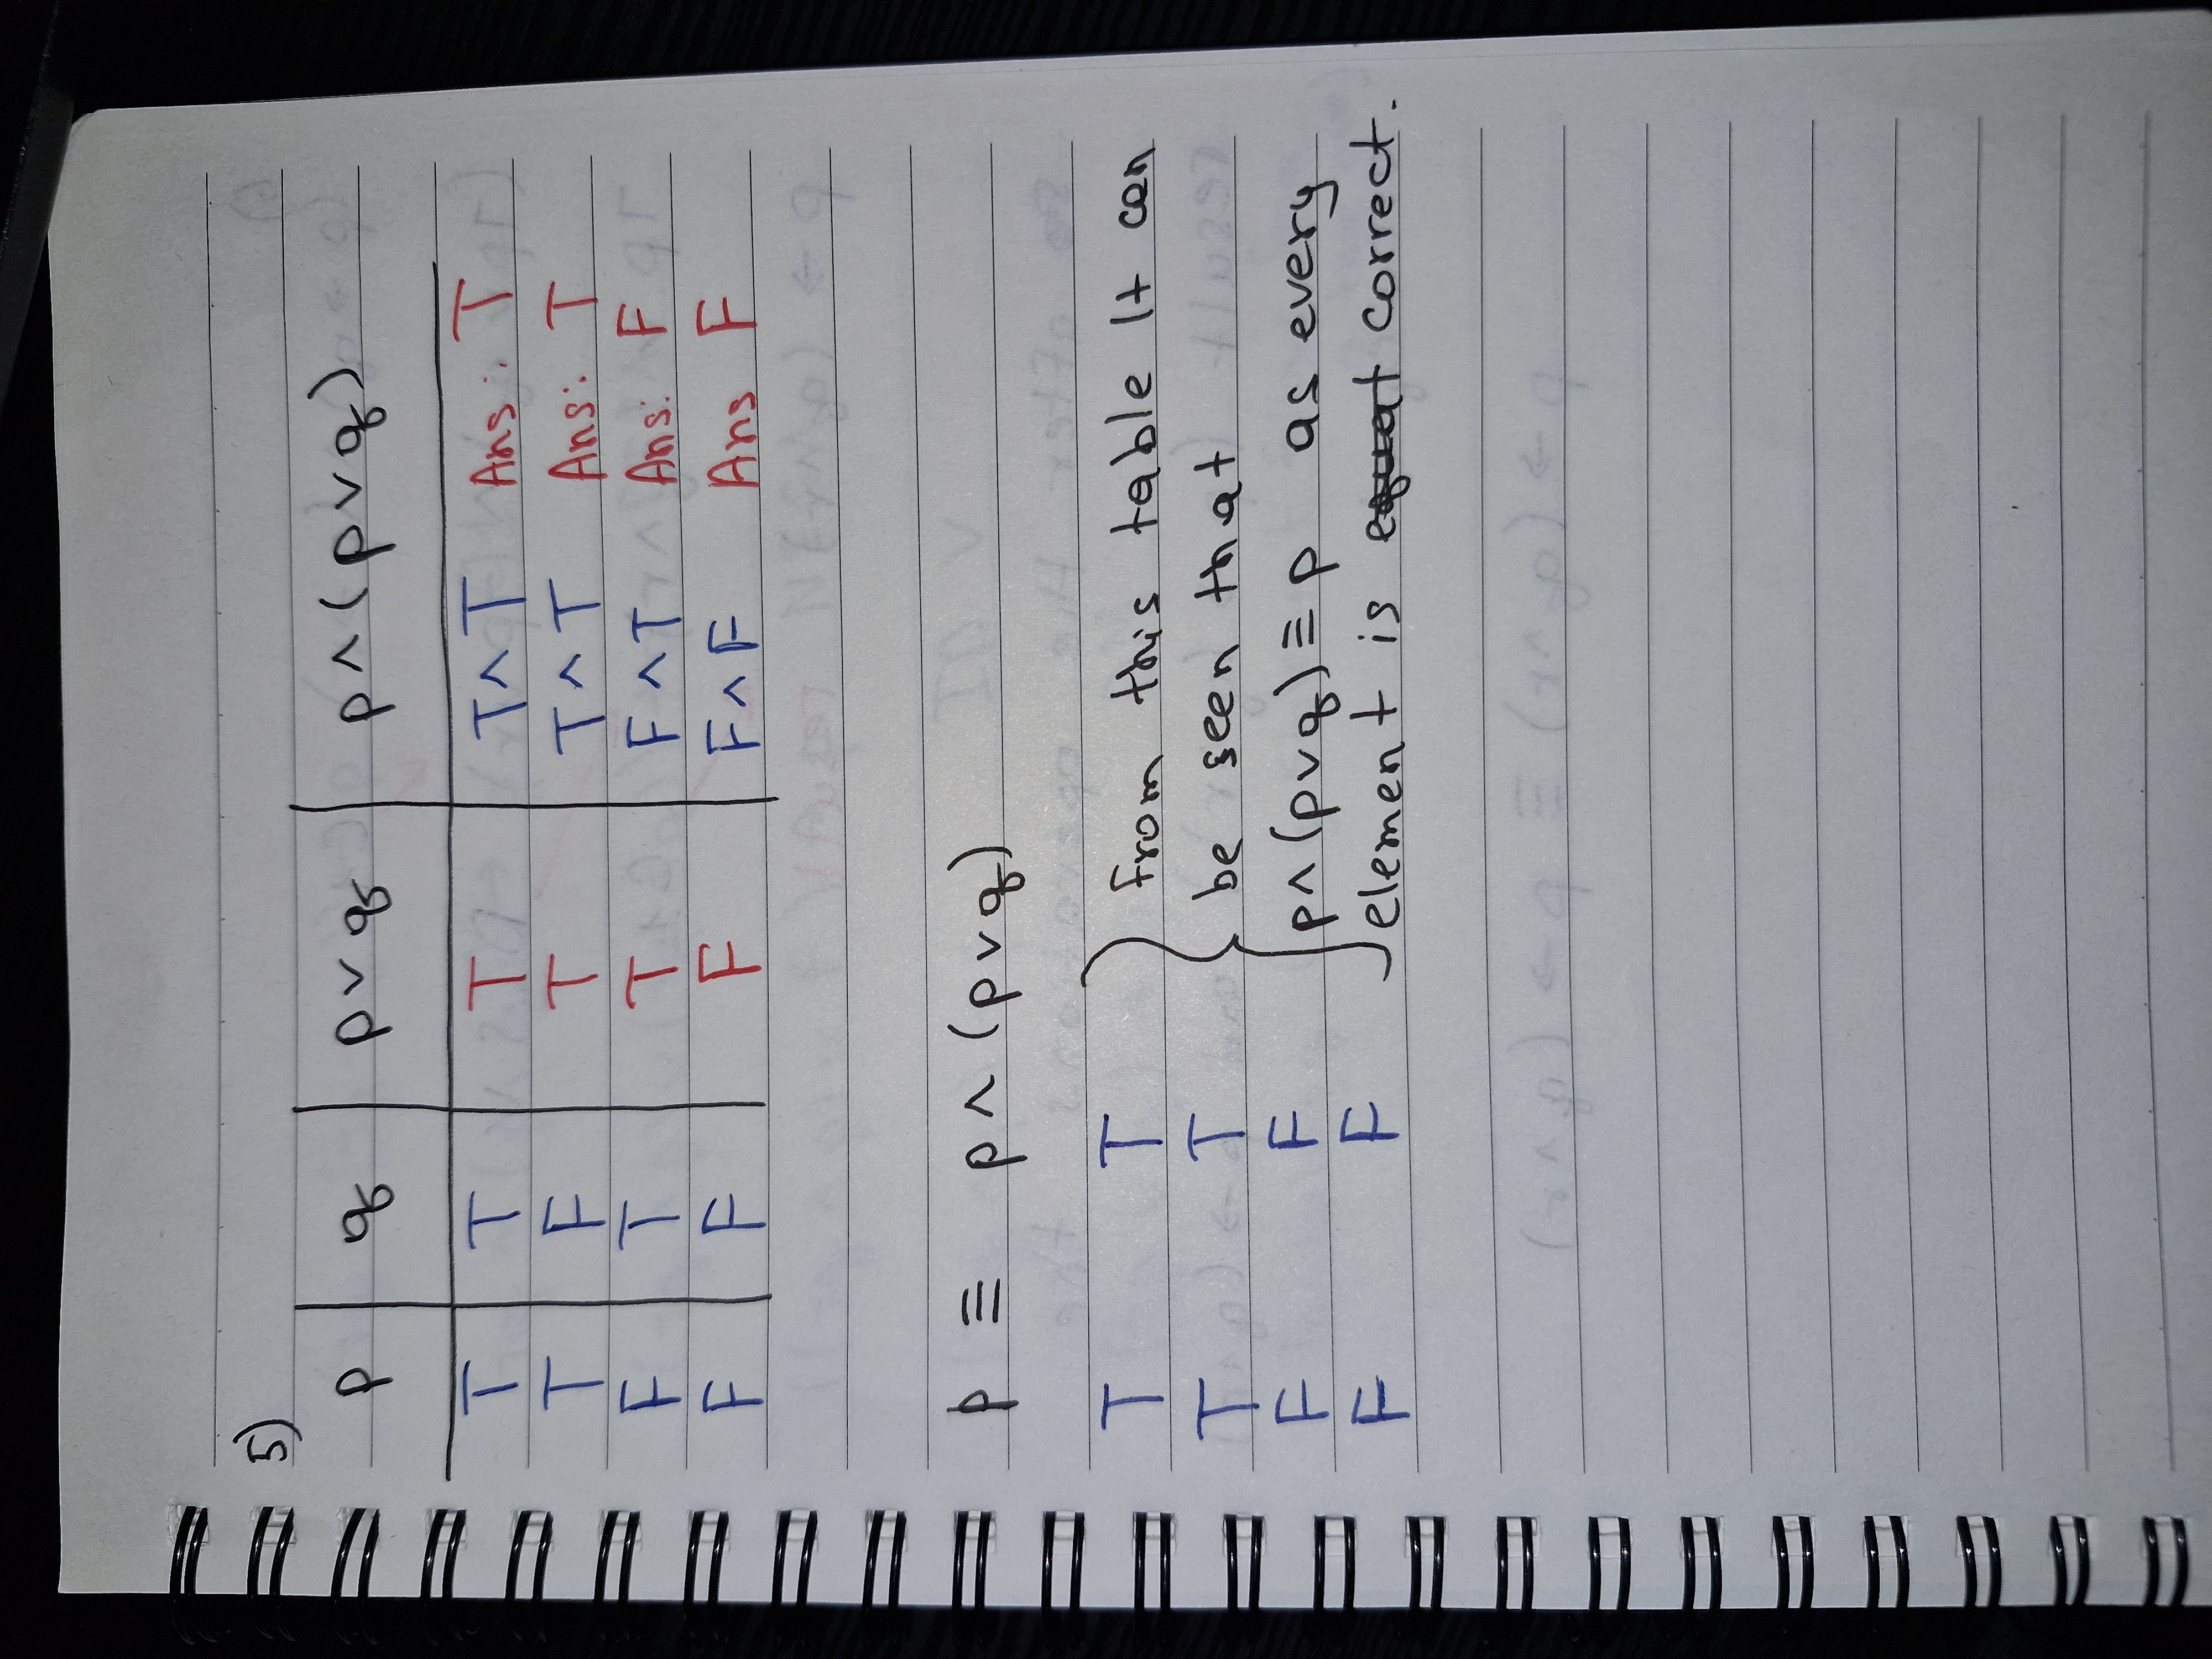 5)
p q p ∨ q p ∧ (p ∨ q)
T T T T ∧ T Ans: T
T F T T ∧ T Ans: T
F T T F ∧ T Ans: F
F F F F ∧ F Ans F
p ≡ p ∧ (p ∨ q)
T T From this table It can
T T be seen that
F F p ∧ (p ∨ q) ≡ p as every
F F element is equat correct.